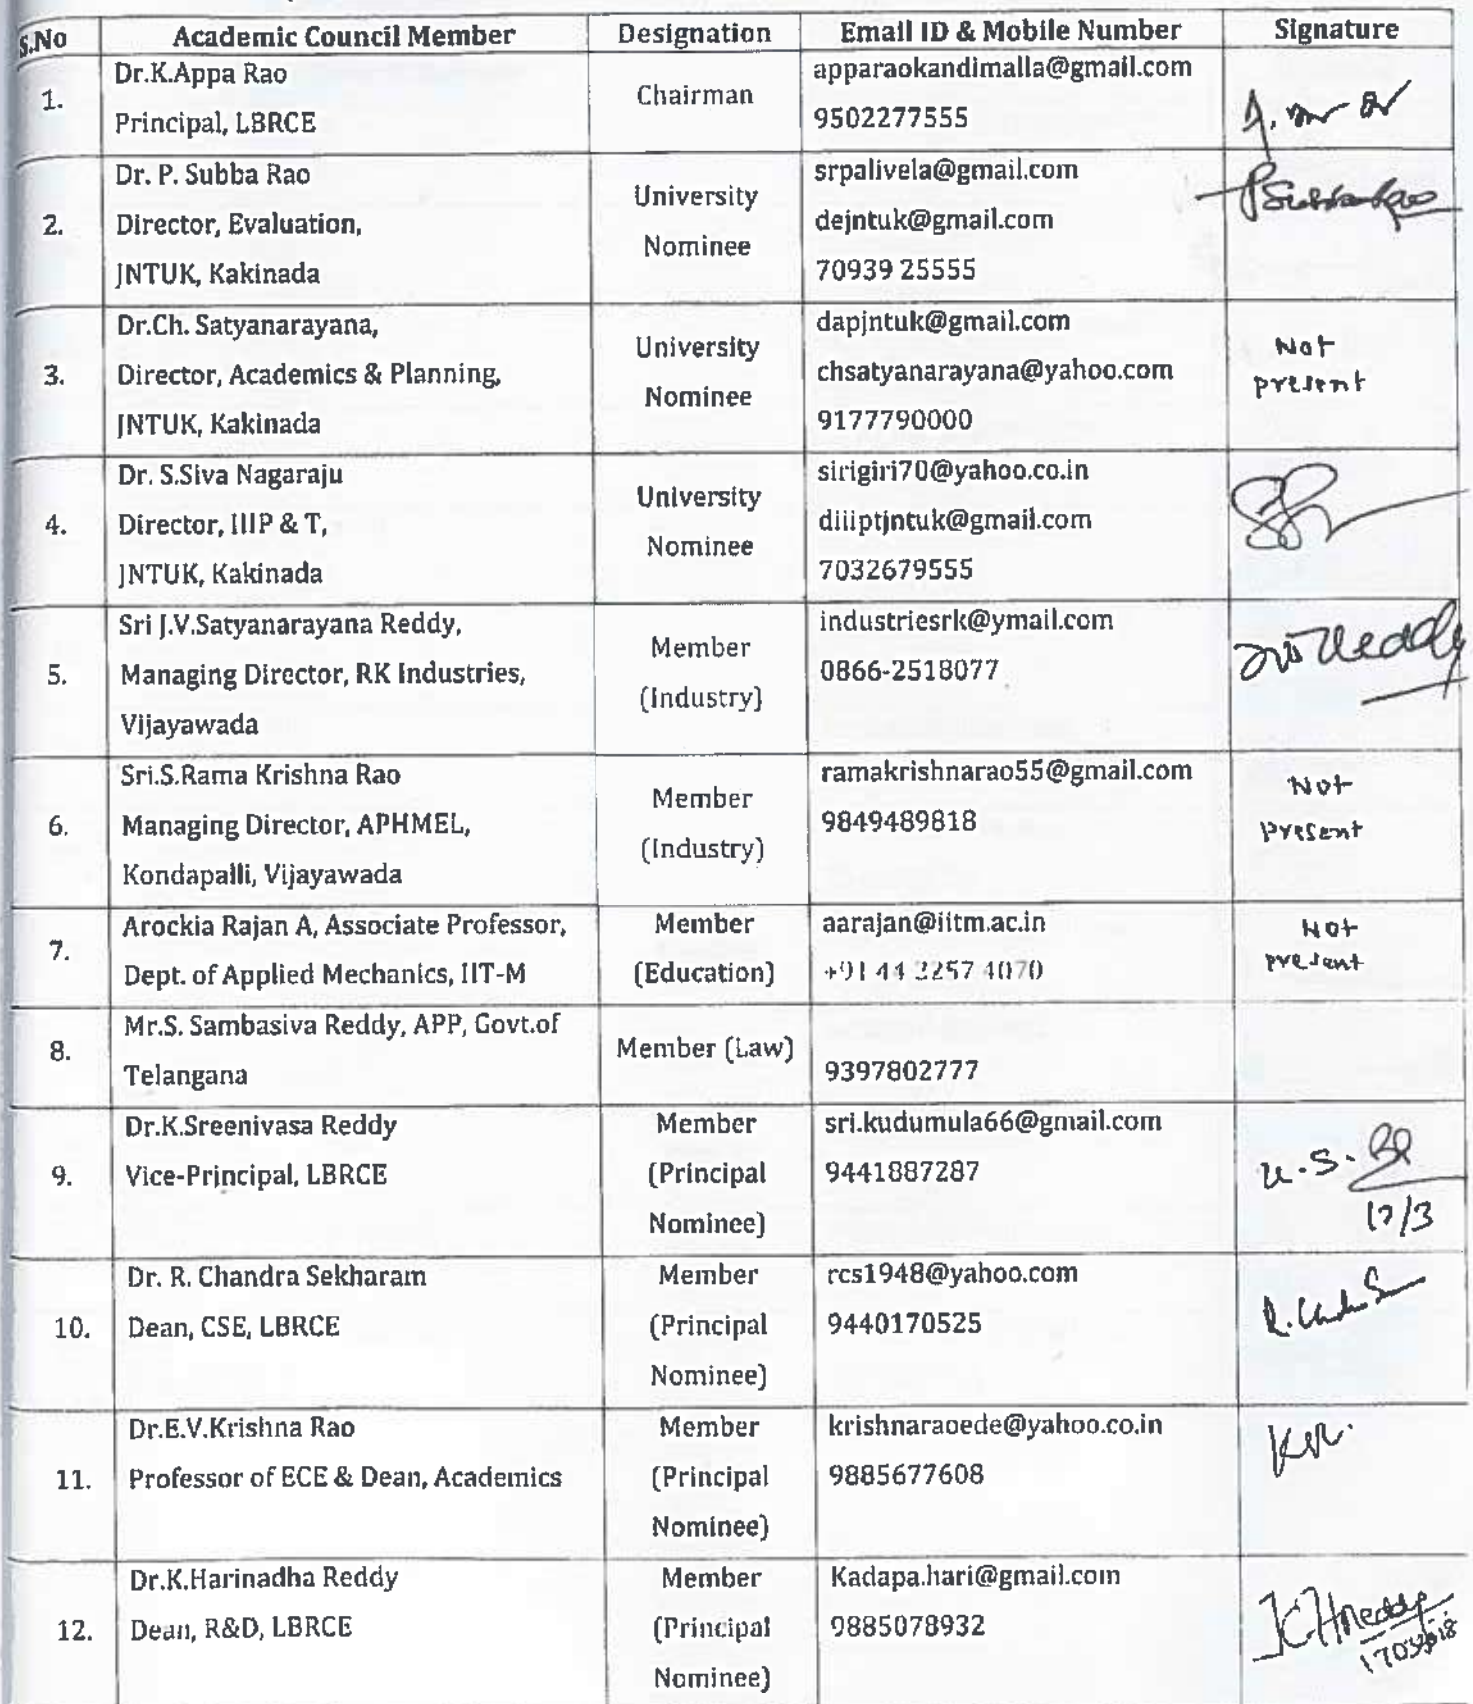 S.No Academic Council Member Designation Email ID & Mobile Number Signature
1. Dr.K.Appa Rao
Principal, LBRCE
Chairman
apparaokandimalla@gmail.com
9502277555
2. Dr. P. Subba Rao
Director, Evaluation,
JNTUK, Kakinada
University
Nominee
srpalivela@gmail.com
dejntuk@gmail.com
70939 25555
PSubbaRao
3. Dr.Ch. Satyanarayana,
Director, Academics & Planning,
JNTUK, Kakinada
University
Nominee
dapjntuk@gmail.com
chsatyanarayana@yahoo.com
9177790000
Not
present
4. Dr. S.Siva Nagaraju
Director, IIIP & T,
JNTUK, Kakinada
University
Nominee
sirigiri70@yahoo.co.in
diiiptjntuk@gmail.com
7032679555
5. Sri J.V.Satyanarayana Reddy,
Managing Director, RK Industries,
Vijayawada
Member
(Industry)
industriesrk@ymail.com
0866-2518077
Reddy
6. Sri.S.Rama Krishna Rao
Managing Director, APHMEL,
Kondapalli, Vijayawada
Member
(Industry)
ramakrishnarao55@gmail.com
9849489818
Not
present
7. Arockia Rajan A, Associate Professor,
Dept. of Applied Mechanics, IIT-M
Member
(Education)
aarajan@iitm.ac.in
+91 44 2257 4070
Not
present
8. Mr.S. Sambasiva Reddy, APP, Govt.of
Telangana
Member (Law)
9397802777
9. Dr.K.Sreenivasa Reddy
Vice-Principal, LBRCE
Member
(Principal
Nominee)
sri.kudumula66@gmail.com
9441887287
17/3
10. Dr. R. Chandra Sekharam
Dean, CSE, LBRCE
Member
(Principal
Nominee)
rcs1948@yahoo.com
9440170525
11. Dr.E.V.Krishna Rao
Professor of ECE & Dean, Academics
Member
(Principal
Nominee)
krishnaraoede@yahoo.co.in
9885677608
12. Dr.K.Harinadha Reddy
Dean, R&D, LBRCE
Member
(Principal
Nominee)
Kadapa.hari@gmail.com
9885078932
KHReddy